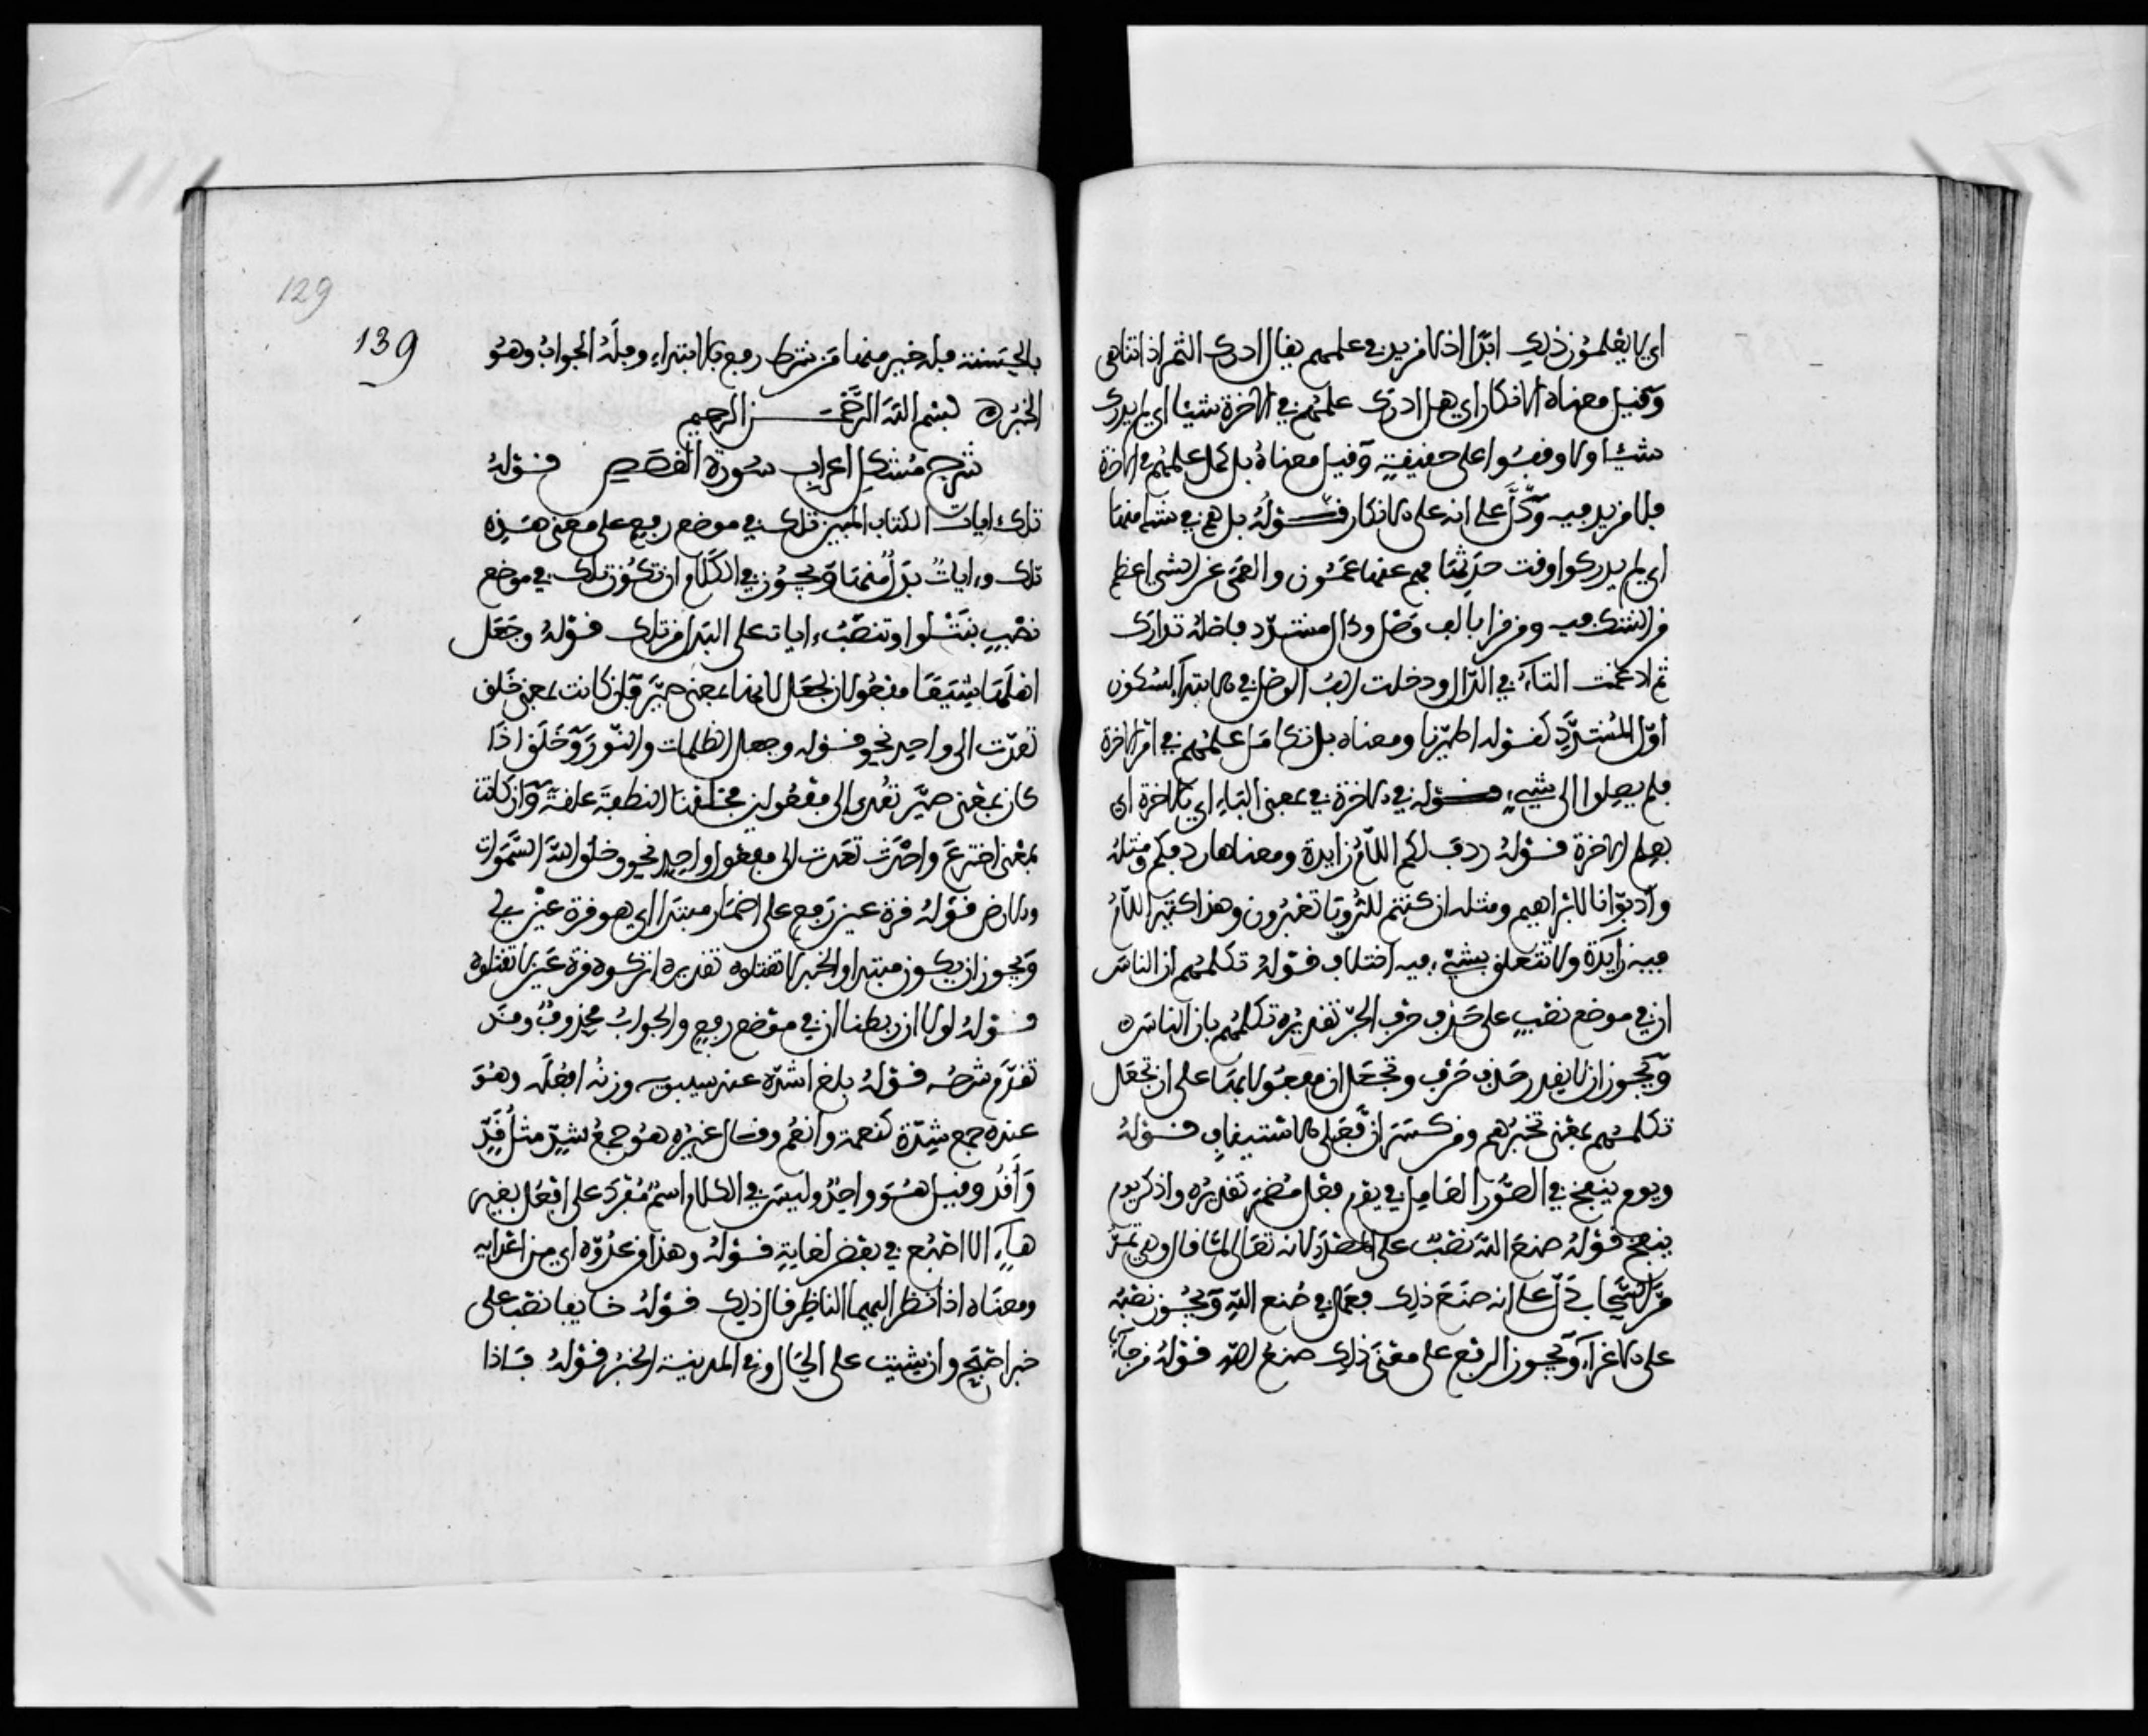 اي لا يعلمون ذلك ابدا اذ لا مزيد في علمهم يقال ادرك الثمر اذا تناهى
وقيل معناه الانكار اي هل ادرك علمهم في الاخرة شيئا اي لم يدرك
شيئا ولا وقفوا على حقيقة وقيل معناه بل كمل علمهم في الاخرة
فلا مزيد فيه ودل على انه على الانكار قوله بل هم في شك منها
اي لم يدركوا وقت حدثها فهم عنها عمون والعمى عن الشي اعظم
من الشك فيه ومن قرا بالف وصل ودال مشدد فاصله تدارك
ثم ادغمت التاء في الدال ودخلت الف الوصل في الابتداء لسكون
اول المشدد كقوله اطيرنا ومعناه بل تكامل علمهم في امر الاخرة
فلم يصلوا الى شيء قوله في الاخرة في بمعنى الباء اي بالاخرة اي
بعلم الاخرة قوله ردف لكم اللام زايدة ومعناها ردفكم ومثله
واذ بوانا لابراهيم ومثله ان كنتم للرويا تعبرون وهذا كثير اللام
فيه زايدة ولا تتعلق بشيء وفيه اختلاف قوله تكلمهم ان الناس
ان في موضع نصب على حذف حرف الجر تقديره تكلمهم بان الناس
ويجوز ان لا يقدر حذف حرف وتجعل ان مفعولا بها على ان تجعل
تكلمهم بمعنى تخبرهم ومن كسر ان فعلى الاستيناف قوله
ويوم ينفخ في الصور العامل في يوم فعل مضمر تقديره واذكر يوم
ينفخ قوله صنع الله نصب على المصدر لانه تعالى لما قال وهي تمر
مر السحاب دل على انه صنع ذلك فعمل في صنع الله ويجوز نصبه
على الاغراء ويجوز الرفع على معنى ذلك صنع الله قوله من جاء
129
139
بالحسنة فله خير منها من شرط رفع بالابتداء وفله الجواب وهو
الخبر بسم الله الرحمن الرحيم
شرح مشكل اعراب سورة القصص قوله
تلك ايات الكتاب المبين تلك في موضع رفع على معنى هذه
تلك وايات بدل منها ويجوز في الكلام ان تكون تلك في موضع
نصب بنتلوا وتنصب ايات على البدل من تلك قوله وجعل
اهلها شيعا مفعولان لجعل لانها بمعنى صير فان كانت بمعنى خلق
تعدت الى واحد نحو قوله وجعل الظلمات والنور وخلق اذا
كان بمعنى صير تعدى الى مفعولين فخلقنا النطفة علقة وان كانت
بمعنى اخترع واحدث تعدت الى مفعول واحد نحو وخلق الله السموات
والارض قوله قرة عين رفع على اضمار مبتدا اي هو قرة عين لي
ويجوز ان يكون مبتدا والخبر لا تقتلوه تقديره اتركوه قرة عين لا تقتلوه
قوله لولا ان ربطنا ان في موضع رفع والجواب محذوف وقد
تقدم شرحه قوله بلغ اشده عند سيبويه وزنه افعل وهو
عنده جمع شدة كنعمة وانعم وقال غيره هو جمع شد مثل قد
واقد وقيل هو واحد وليس في الكلام اسم مفرد على افعل بغير
هاء الا اصبع في بعض لغاته قوله وهذا من عدوه اي من اعدايه
ومعناه اذا نظر اليهما الناظر قال ذلك قوله خايفا نصب على
خبر اصبح وان شيت على الحال وفي المدينة الخبر قوله فاذا